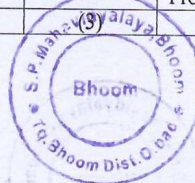 (3)
S.P. Mahavidyalaya, Bhoom
Bhoom
Tq. Bhoom Dist. O.bad